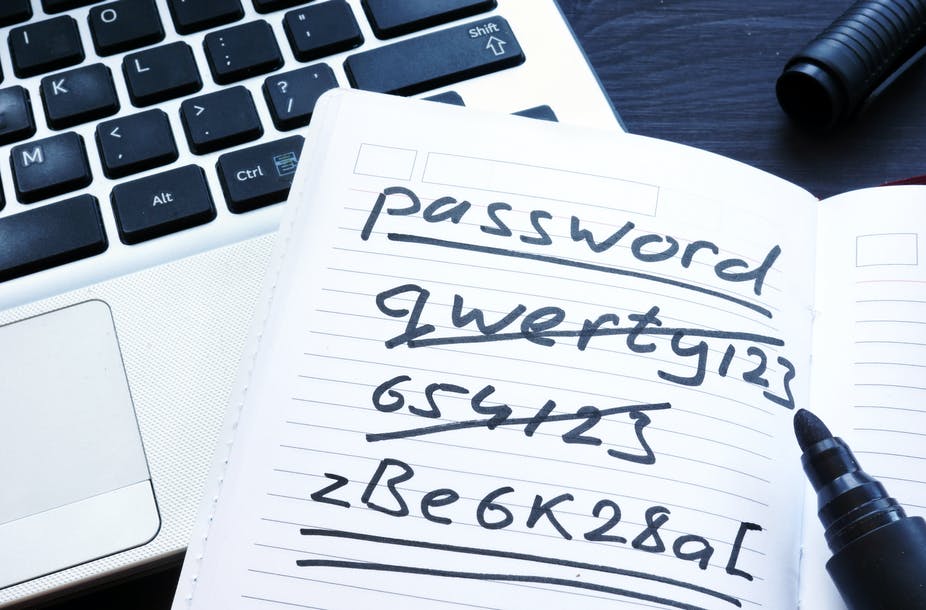 O
I
L
: ;
" '
Shift
K
? /
> .
< ,
M
Ctrl
Alt
password
qwerty123
654123
zBe6K28a[